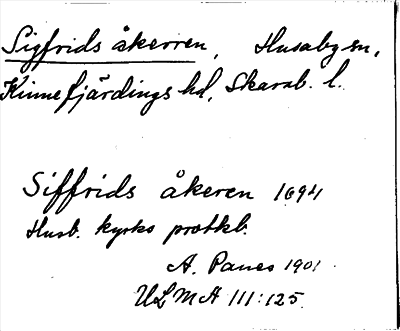 Sigfrids åkerren, Husaby sn,
Kinnefjärdings hd, Skarab. l.
Siffrids åkeren 1694
Husb. kyrko protkb.
A. Panes 1901
ULMA 111:125.